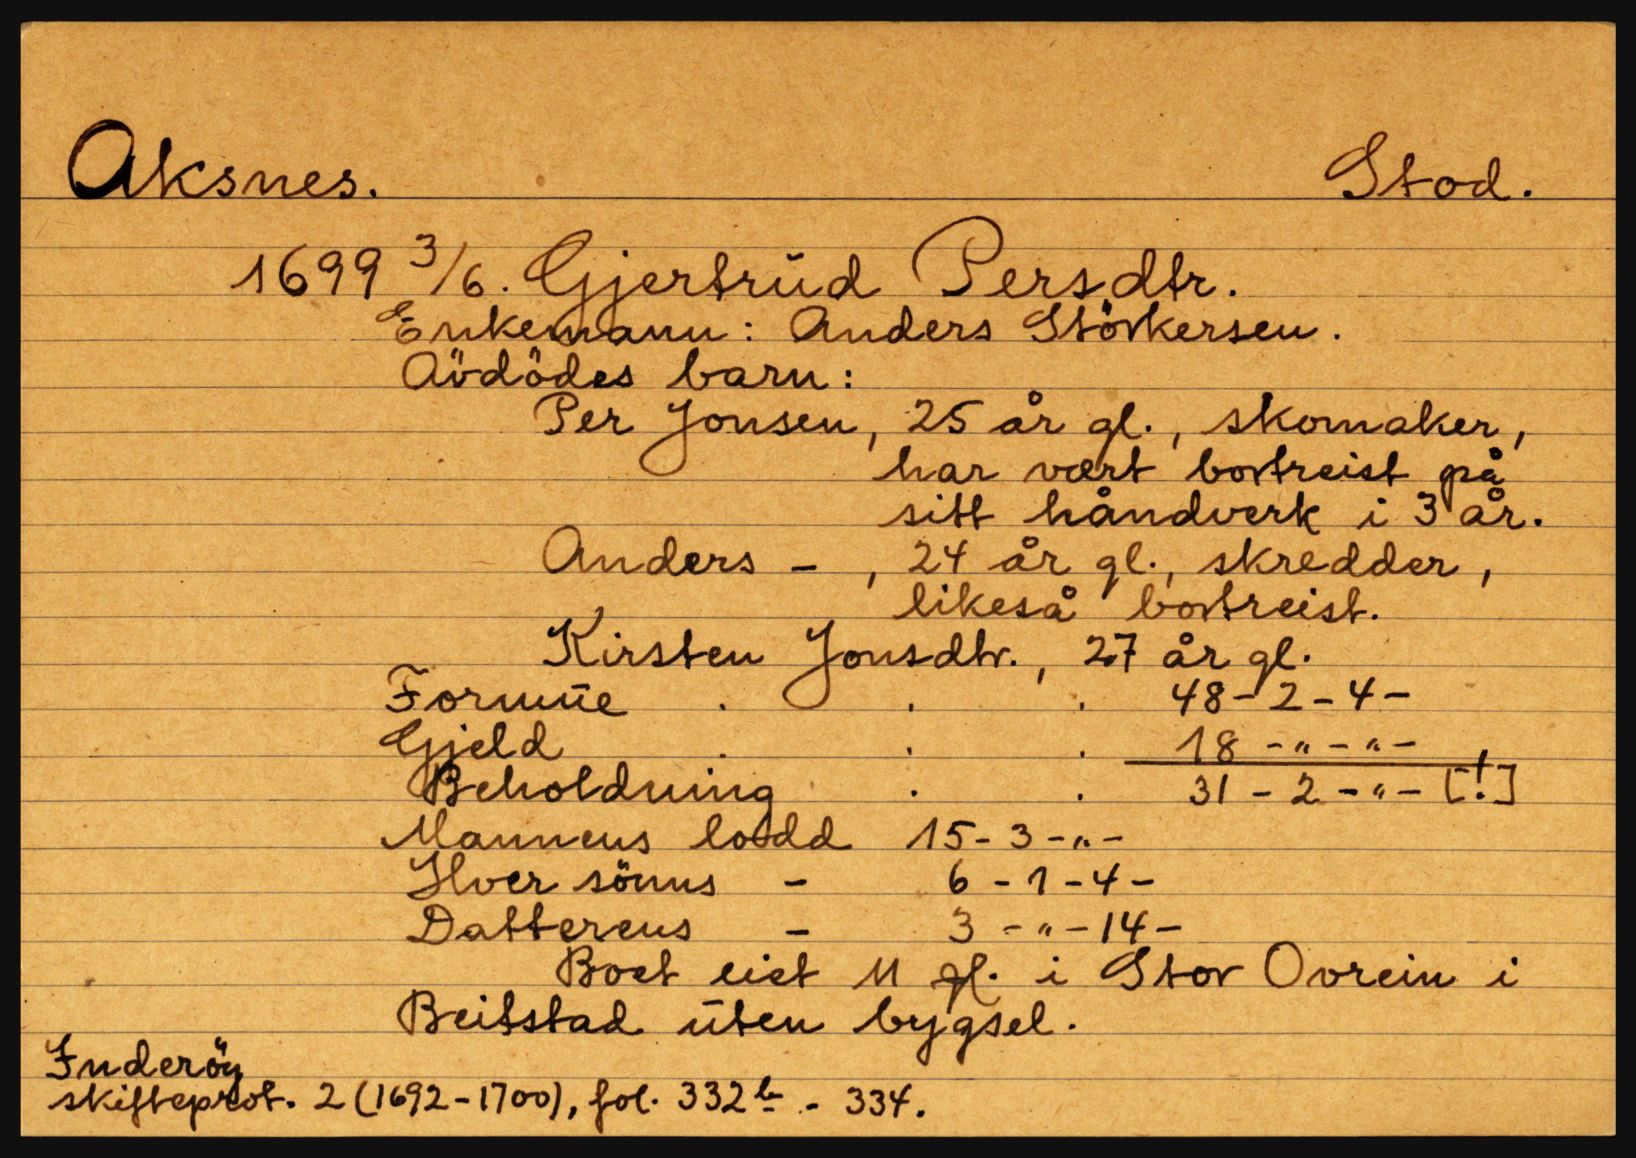 Aksnes. Stod.
1699 3/6. Gjertrud Persdtr.
Enkemann: Anders Störkersen.
Avdödes barn:
Per Jonsen, 25 år gl., skomaker,
har vært bortreist på
sitt håndverk i 3 år.
Anders - , 24 år gl., skredder,
likeså bortreist.
Kirsten Jonsdtr., 27 år gl.
Formue . . . 48-2-4-
Gjeld . . . 18-"-"-
Beholdning . . 31-2-"- [!]
Mannens lodd 15-3-"-
Hver sönns - 6-1-4-
Datterens - 3-"-14-
Boet eiet 11 gl. i Stor Overein i
Beitstad uten bygsel.
Inderöy
skifteprot. 2 (1692-1700), fol. 332 b - 334.